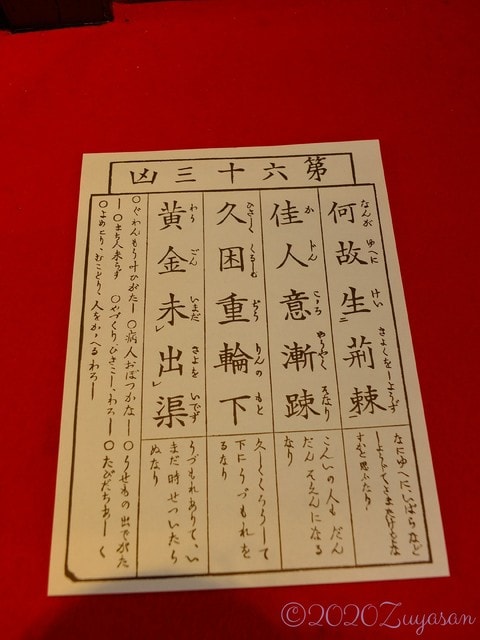 第六十三凶
何故生荊棘
なんがゆへにけいきよくをしようず
なにゆへにいばらなど
しようじてさまたげをな
佳人意漸踈
かじんこゝろやうやくそなり
こんいの人もだん
だんそゑんになる
なり
久困重輪下
ひさしくくるしむぢうりんのもと
久しくくろうして
下にうづもれを
るなり
黄金未出渠
わうごんいまだきよをいでず
うづもれありて、い
まだ時せついたら
ぬなり
○ぐわんもう叶ひがたし ○病人おぼつかなし ○うせもの出でがた
し ○まち人来らず ○やづくり、ひきこし、わろし ○たびだちあしく
○よめとり、むことり、人をかゝへるわろし
©2020Zuyasan